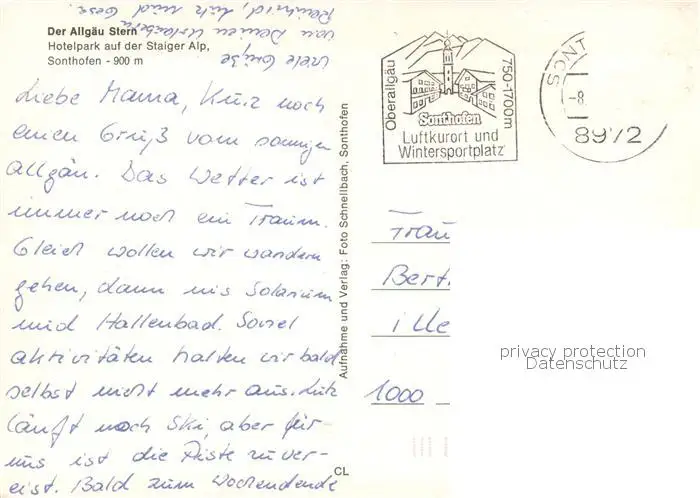 Der Allgäu Stern
Hotelpark auf der Staiger Alp,
Sonthofen - 900 m
Liebe Mama, Kurz noch
einen Gruß vom sonnigen
Allgäu. Das Wetter ist
immer noch ein Traum.
Gleich wollen wir wandern
gehen, dann ins Solarium
und Hallenbad. Soviel
Aktivitäten halten wir bald
selbst nicht mehr aus. Lutz
läuft noch Ski, aber für
uns ist die Piste zu ver-
eist. Bald zum Wochenende
viele Grüße
von Deinen Urlaubern
Lutz und
Aufnahme und Verlag: Foto Schnellbach, Sonthofen
CL
Oberallgäu
750-1700m
Sonthofen
Luftkurort und
Wintersportplatz
SONT
-8.
8972
Frau
Bert
1000
privacy protection
Datenschutz